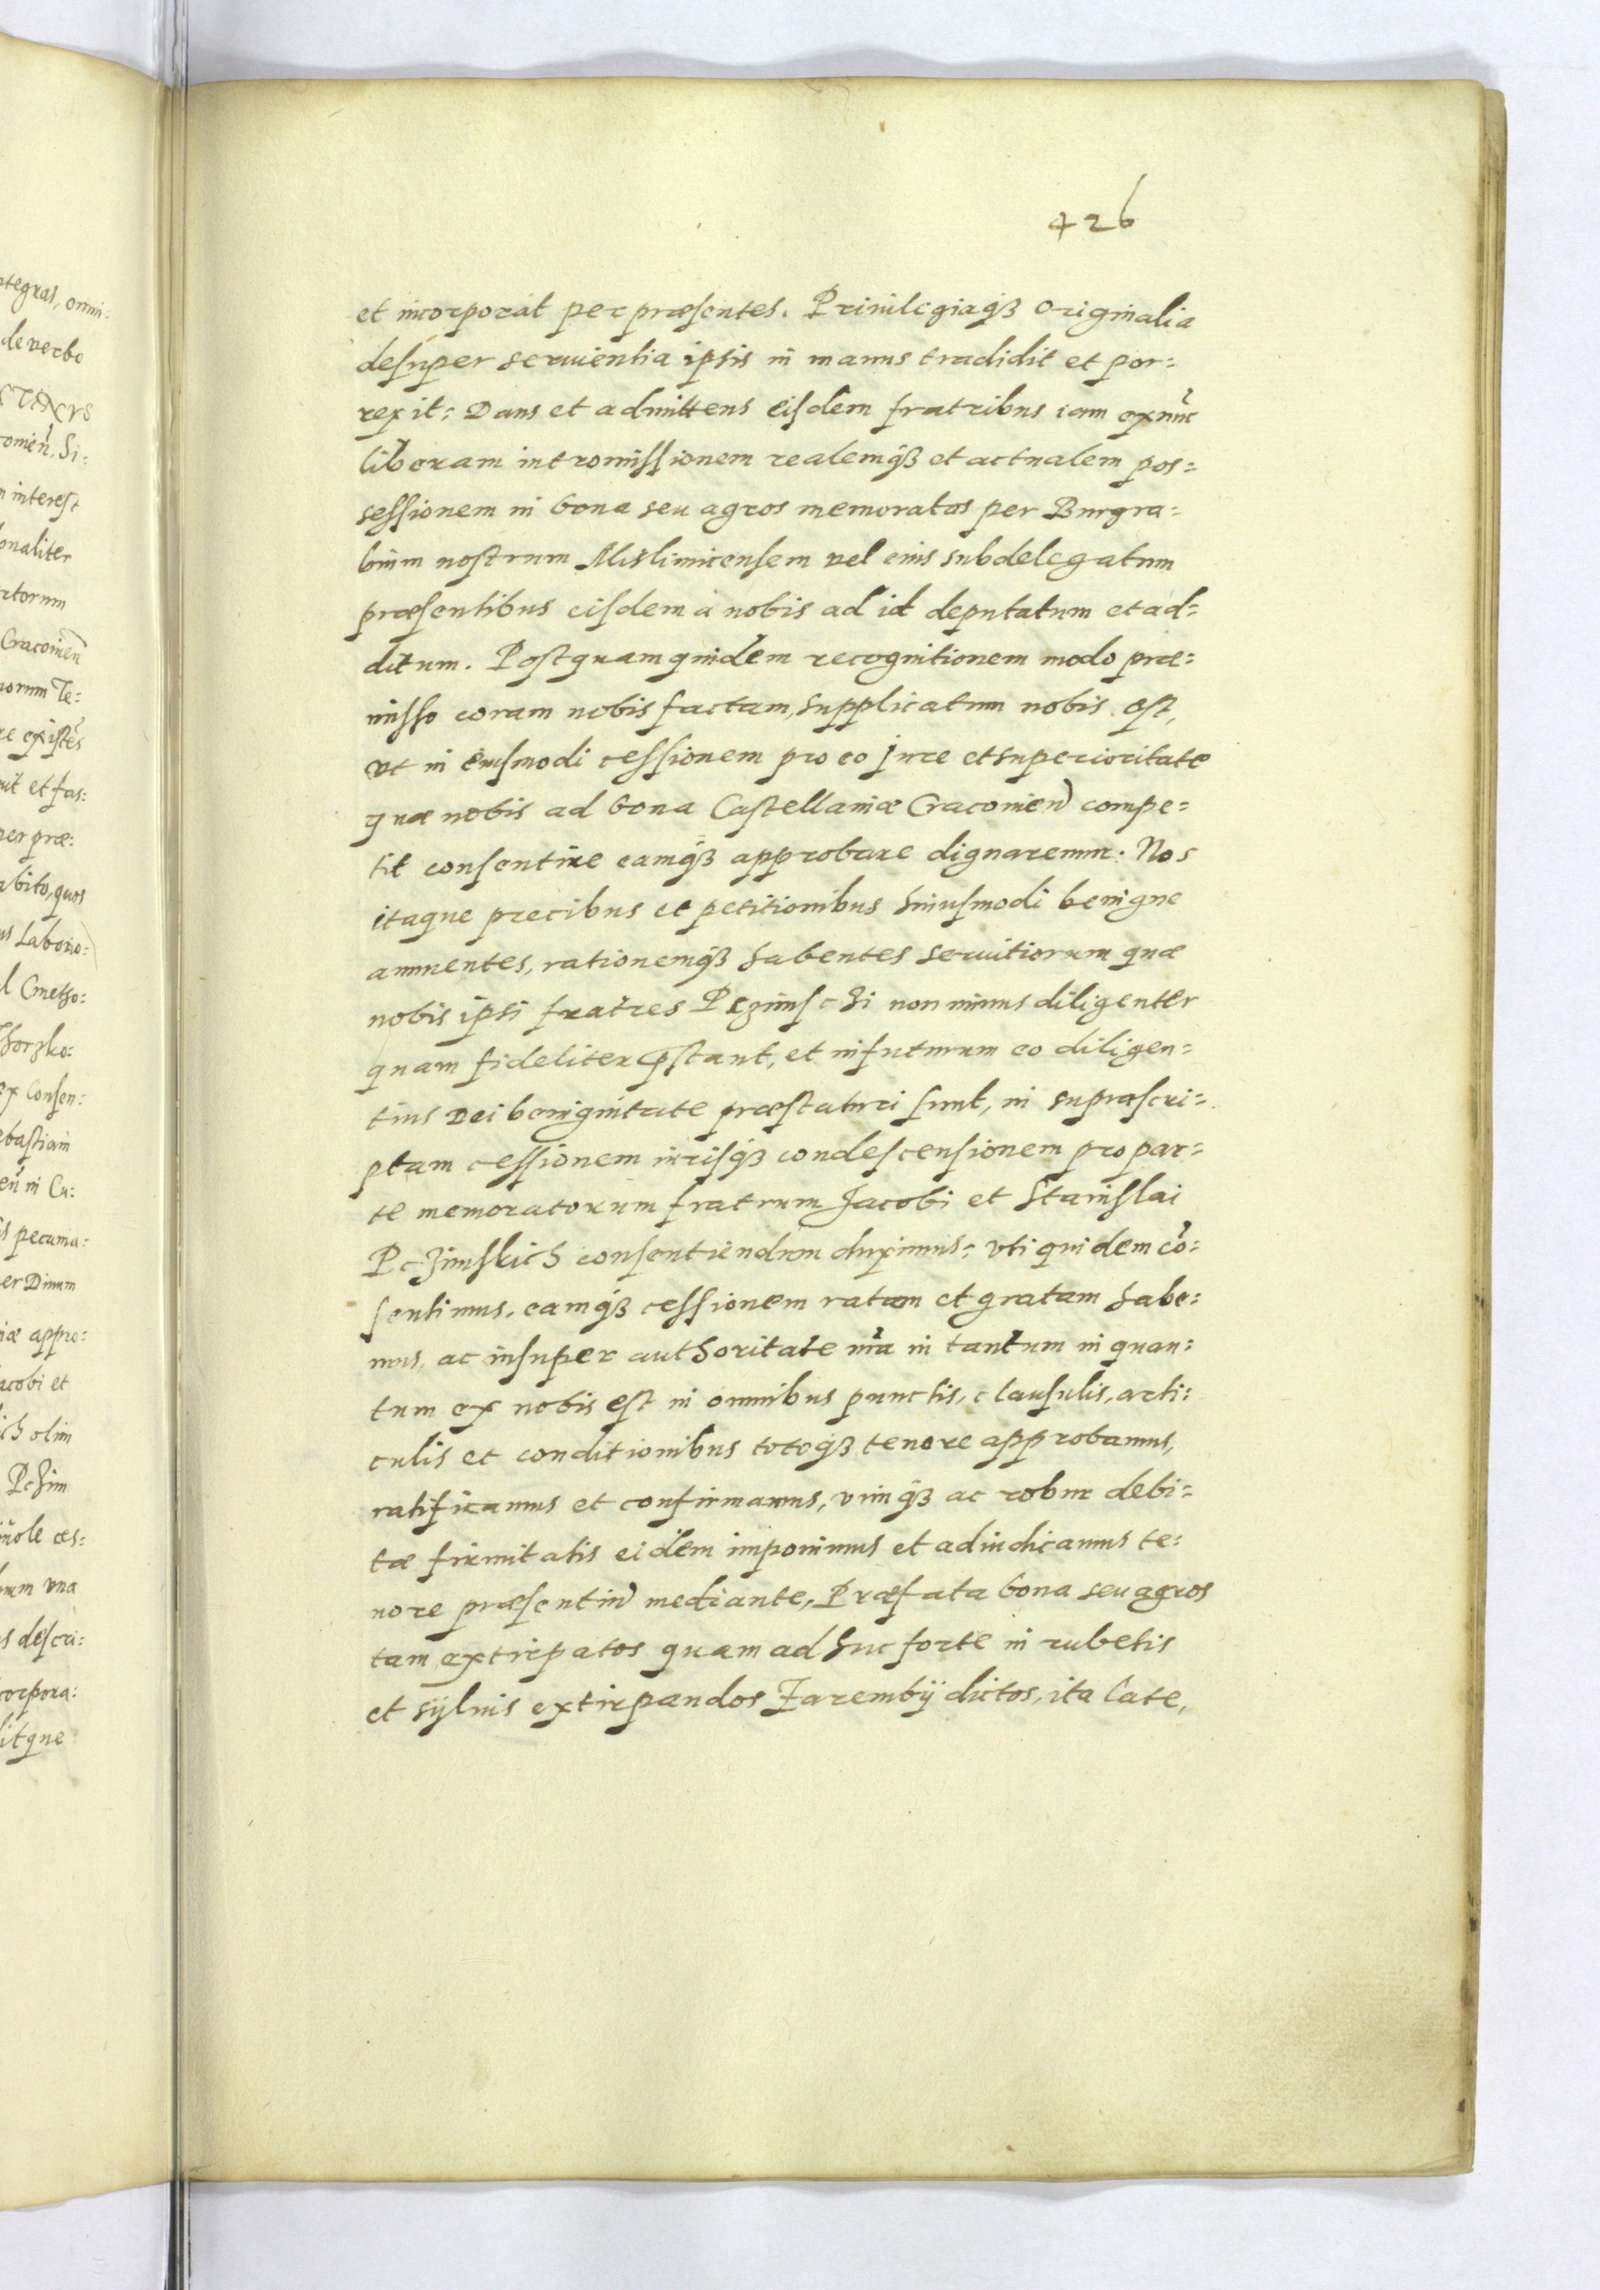 426
et incorporat per præsentes. Priuilegiaq₃ originalia
desuper seruientia ipsis in manus tradidit et por=
rexit: Dans et admittens eisdem fratribus iam exnũc
liberam intromissionem realemq₃ et actualem pos=
sessionem in bona seu agros memoratos per Burgra=
bium nostrum Mislimicensem vel eius subdelegatum
præsentibus eisdem à nobis ad id deputatum et ad=
ditum. Postquamquidem recognitionem modo præ=
misso coram nobis factam, supplicatum nobis est,
vt in eiusmodi cessionem pro eo jure et superioritate
quæ nobis ad bona Castellaniæ Cracouien̄ compe=
tit consentire eamq₃ approbare dignaremur. Nos
itaque precibus et petitionibus huiusmodi benigne
annuentes, rationemq₃ habentes seruitiorum quæ
nobis ipsi fratres Pczimschi non minus diligenter
quam fideliter p̄stant, et infuturum eo diligen=
tius Dei benignitate præstaturi sunt, in suprascri=
ptam cessionem iurisq₃ condescensionem pro par=
te memoratorum fratrum Jacobi et Stanislai
Pczimskich consentiendum duximus: vti quidem cō=
sentimus, eamq₃ cessionem ratam et gratam habe=
mus, ac insuper authoritate nr̃a in tantum in quan=
tum ex nobis est in omnibus punctis, clausulis, arti=
culis et conditionibus totoq₃ tenore approbamus,
ratificamus et confirmamus, vimq₃ ac robur debi=
tæ firmitatis eidem imponimus et adiudicamus te=
nore præsentiū mediante, Præfata bona seu agros
tam extirpatos quam adhuc forte in rubetis
et syluis extirpandos Zarembÿ dictos, ita late,
ntegras, omni=
de verbo
comieñ. Si=
m interest
onaliter
atorum
Cracouień
norum Te=
re existēs
uit et fas=
per præ=
abito, quos
us Laborio=
l Cmetho=
ex consen=
ebastiam
eñ in Cu=
is pecunia=
er Dinum
iæ appro=
acobi et
ich olim
Pczim
mole æs=
bum vna
is descri=
corpora=
litque